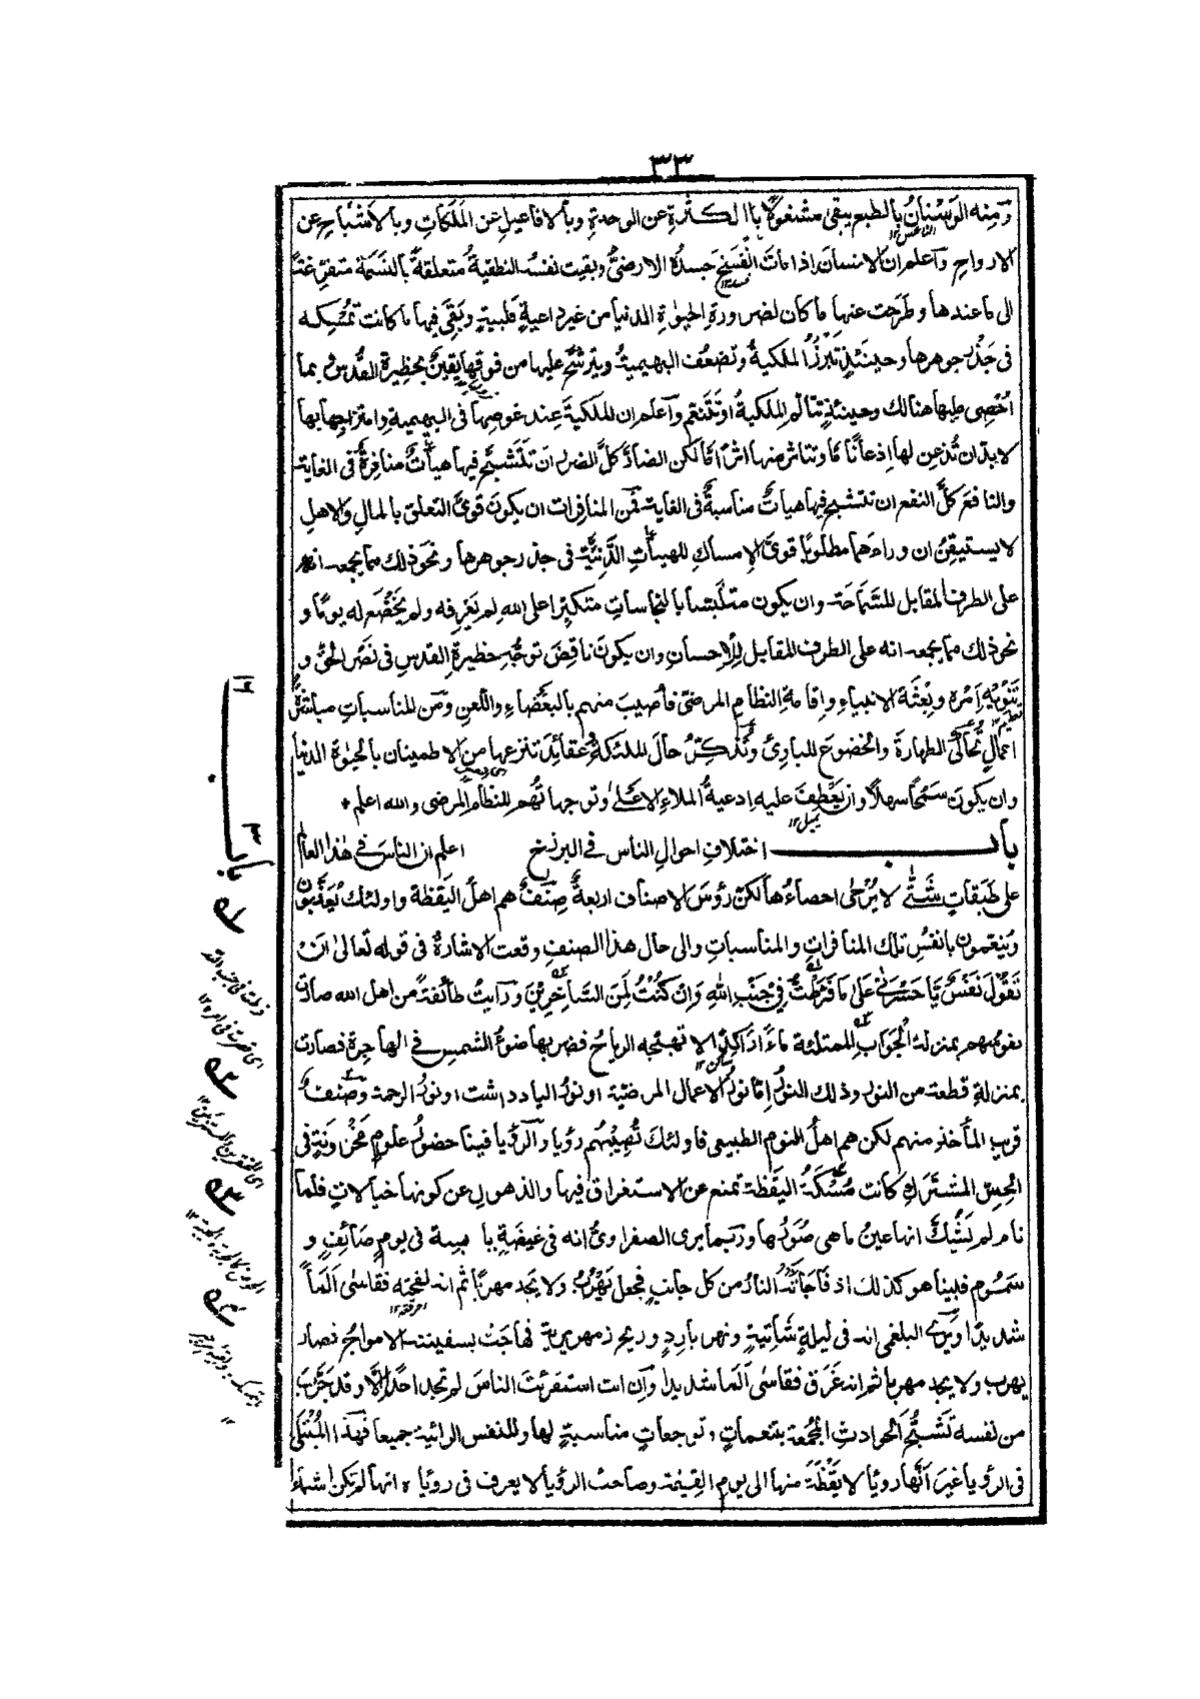 ٣٣
ومنه الوسنان بالطبع يبقى مشغولا بالكثرة عن الوحدة وبالافاعيل عن الملكات وبالاشباح عن
الارواح واعلم ان الانسان اذا مات انفسخ جسده الارضى وبقيت نفسه النطقية متعلقة بالنسمة متفرغة
الى ما عندها وطرحت عنها ما كان لضرورة الحيوة الدنيا من غير داعية قلبية وبقى فيها ما كانت تمسكه
فى جذر جوهرها وحينئذ تبرز الملكية وتضعف البهيمية ويترشح عليها من فوقها يقين بحظيرة القدس بما
احصى عليها هنالك وحينئذ تتالم الملكية او تتنعم واعلم ان الملكية عند غوصها فى البهيمية وامتزاجها بها
لا بد ان تذعن لها اذعانا ما وتتاثر منها اثرا ما لكن الضار كل الضرر ان تتشبح فيها هيأت منافرة فى الغاية
والنافع كل النفع ان تتشبح فيها هيأت مناسبة فى الغاية فمن المنافرات ان يكون قوى التعلق بالمال والاهل
لا يستيقن ان وراءهما مطلوبا قوى الامساك للهيأت الدنية فى جذر جوهرها ونحو ذلك مما يجمعه انه
على الطرف المقابل للسماحة وان يكون متلبسا بالنجاسات متكبرا على الله لم يعرفه ولم يخضع له يوما و
نحو ذلك مما يجمعه انه على الطرف المقابل للاحسان وان يكون ناقض توجه حظيرة القدس فى نصر الحق و
تنويه امره وبعثة الانبياء واقامة النظام المرضى فاصيب منهم بالبغضاء واللعن ومن المناسبات مباشرة
اعمال تحاكى الطهارة والخضوع للبارئ وتذكر حال الملئكة وعقائد تنزعها من الاطمينان بالحيوة الدنيا
وان يكون سمحا سهلا وان يعطف عليه ادعية الملاء الاعلى وتوجهاتهم للنظام المرضى والله اعلم
باب اختلاف احوال الناس فى البرزخ اعلم ان الناس فى هذا العالم
على طبقات شتى لا يرجى احصاءها لكن رؤس الاصناف اربعة صنف هم اهل اليقظة واولئك يعذبون
وينعمون بانفس تلك المنافرات والمناسبات والى حال هذا الصنف وقعت الاشارة فى قوله تعالى ان
تقول نفس يا حسرتى على ما فرطت فى جنب الله وان كنت لمن الساخرين ورايت طائفة من اهل الله صارت
نفوسهم بمنزلة الجواب الممتلئة ماء اذا راكدا لا تهيجه الرياح فضربها ضوء الشمس فى الهاجرة فصارت
بمنزلة قطعة من النور وذلك النور اما نور الاعمال المرضية او نور الياد داشت او نور الرحمة وصنف
قريب المأخذ منهم لكن هم اهل النوم الطبيعى فاولئك تصيبهم رؤيا والرؤيا فينا حضور علوم مخزونة فى
الحس المشترك كانت مسكة اليقظة تمنع عن الاستغراق فيها والذهول عن كونها خيالات فلما
نام لم يشك انها عين ما هى صورها وربما يرى الصفراوى انه فى غيضة يابسة فى يوم صائف و
سموم فبينا هو كذلك اذ فاجأته النار من كل جانب فجعل يهرب ولا يجد مهربا ثم انه لفحته فقاسى الما
شديدا ويرى البلغمى انه فى ليلة شاتية ونهر بارد وريح زمهريرية فهاجت بسفينته الامواج فصار
يهرب ولا يجد مهربا ثم انه غرق فقاسى الما شديدا وان انت استقريت الناس لم تجد احدا الا وقد جرب
من نفسه تشبح الحوادث المجمعة بتنعمات وتوجعات مناسبة لها وللنفس الرائية جميعا فهذا المبتلى
فى الرؤيا غير انها رؤيا لا يقظة منها الى يوم القيمة وصاحب الرؤيا لا يعرف فى رؤياه انها لم تكن اشياء
باب ٣